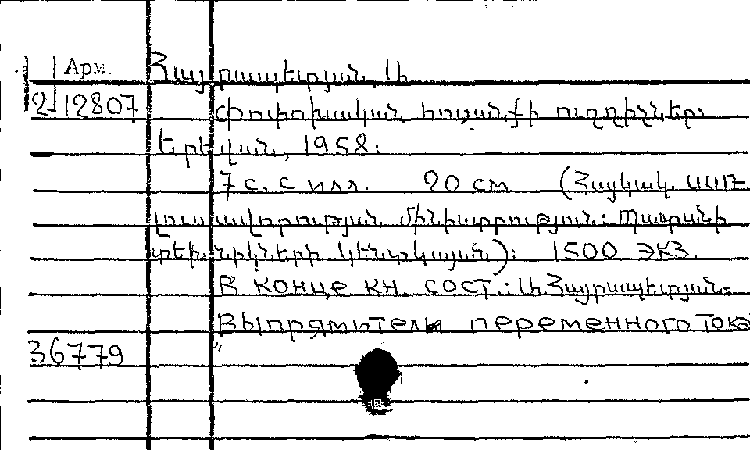 Арм. Հայրապետյան, Ա.
2-12807 Փոփոխական հոսանքի ուղղիչներ:
Երեվան, 1958:
7 с. с илл. 20 см (Հայկակ. ՍՍՌ
լուսավորության մինիստրություն: Պատանի
տեխնիկների կենտկայան): 1500 экз.
В конце кн. сост.: Ա. Հայրապետյան.
Выпрямители переменного тока
36779